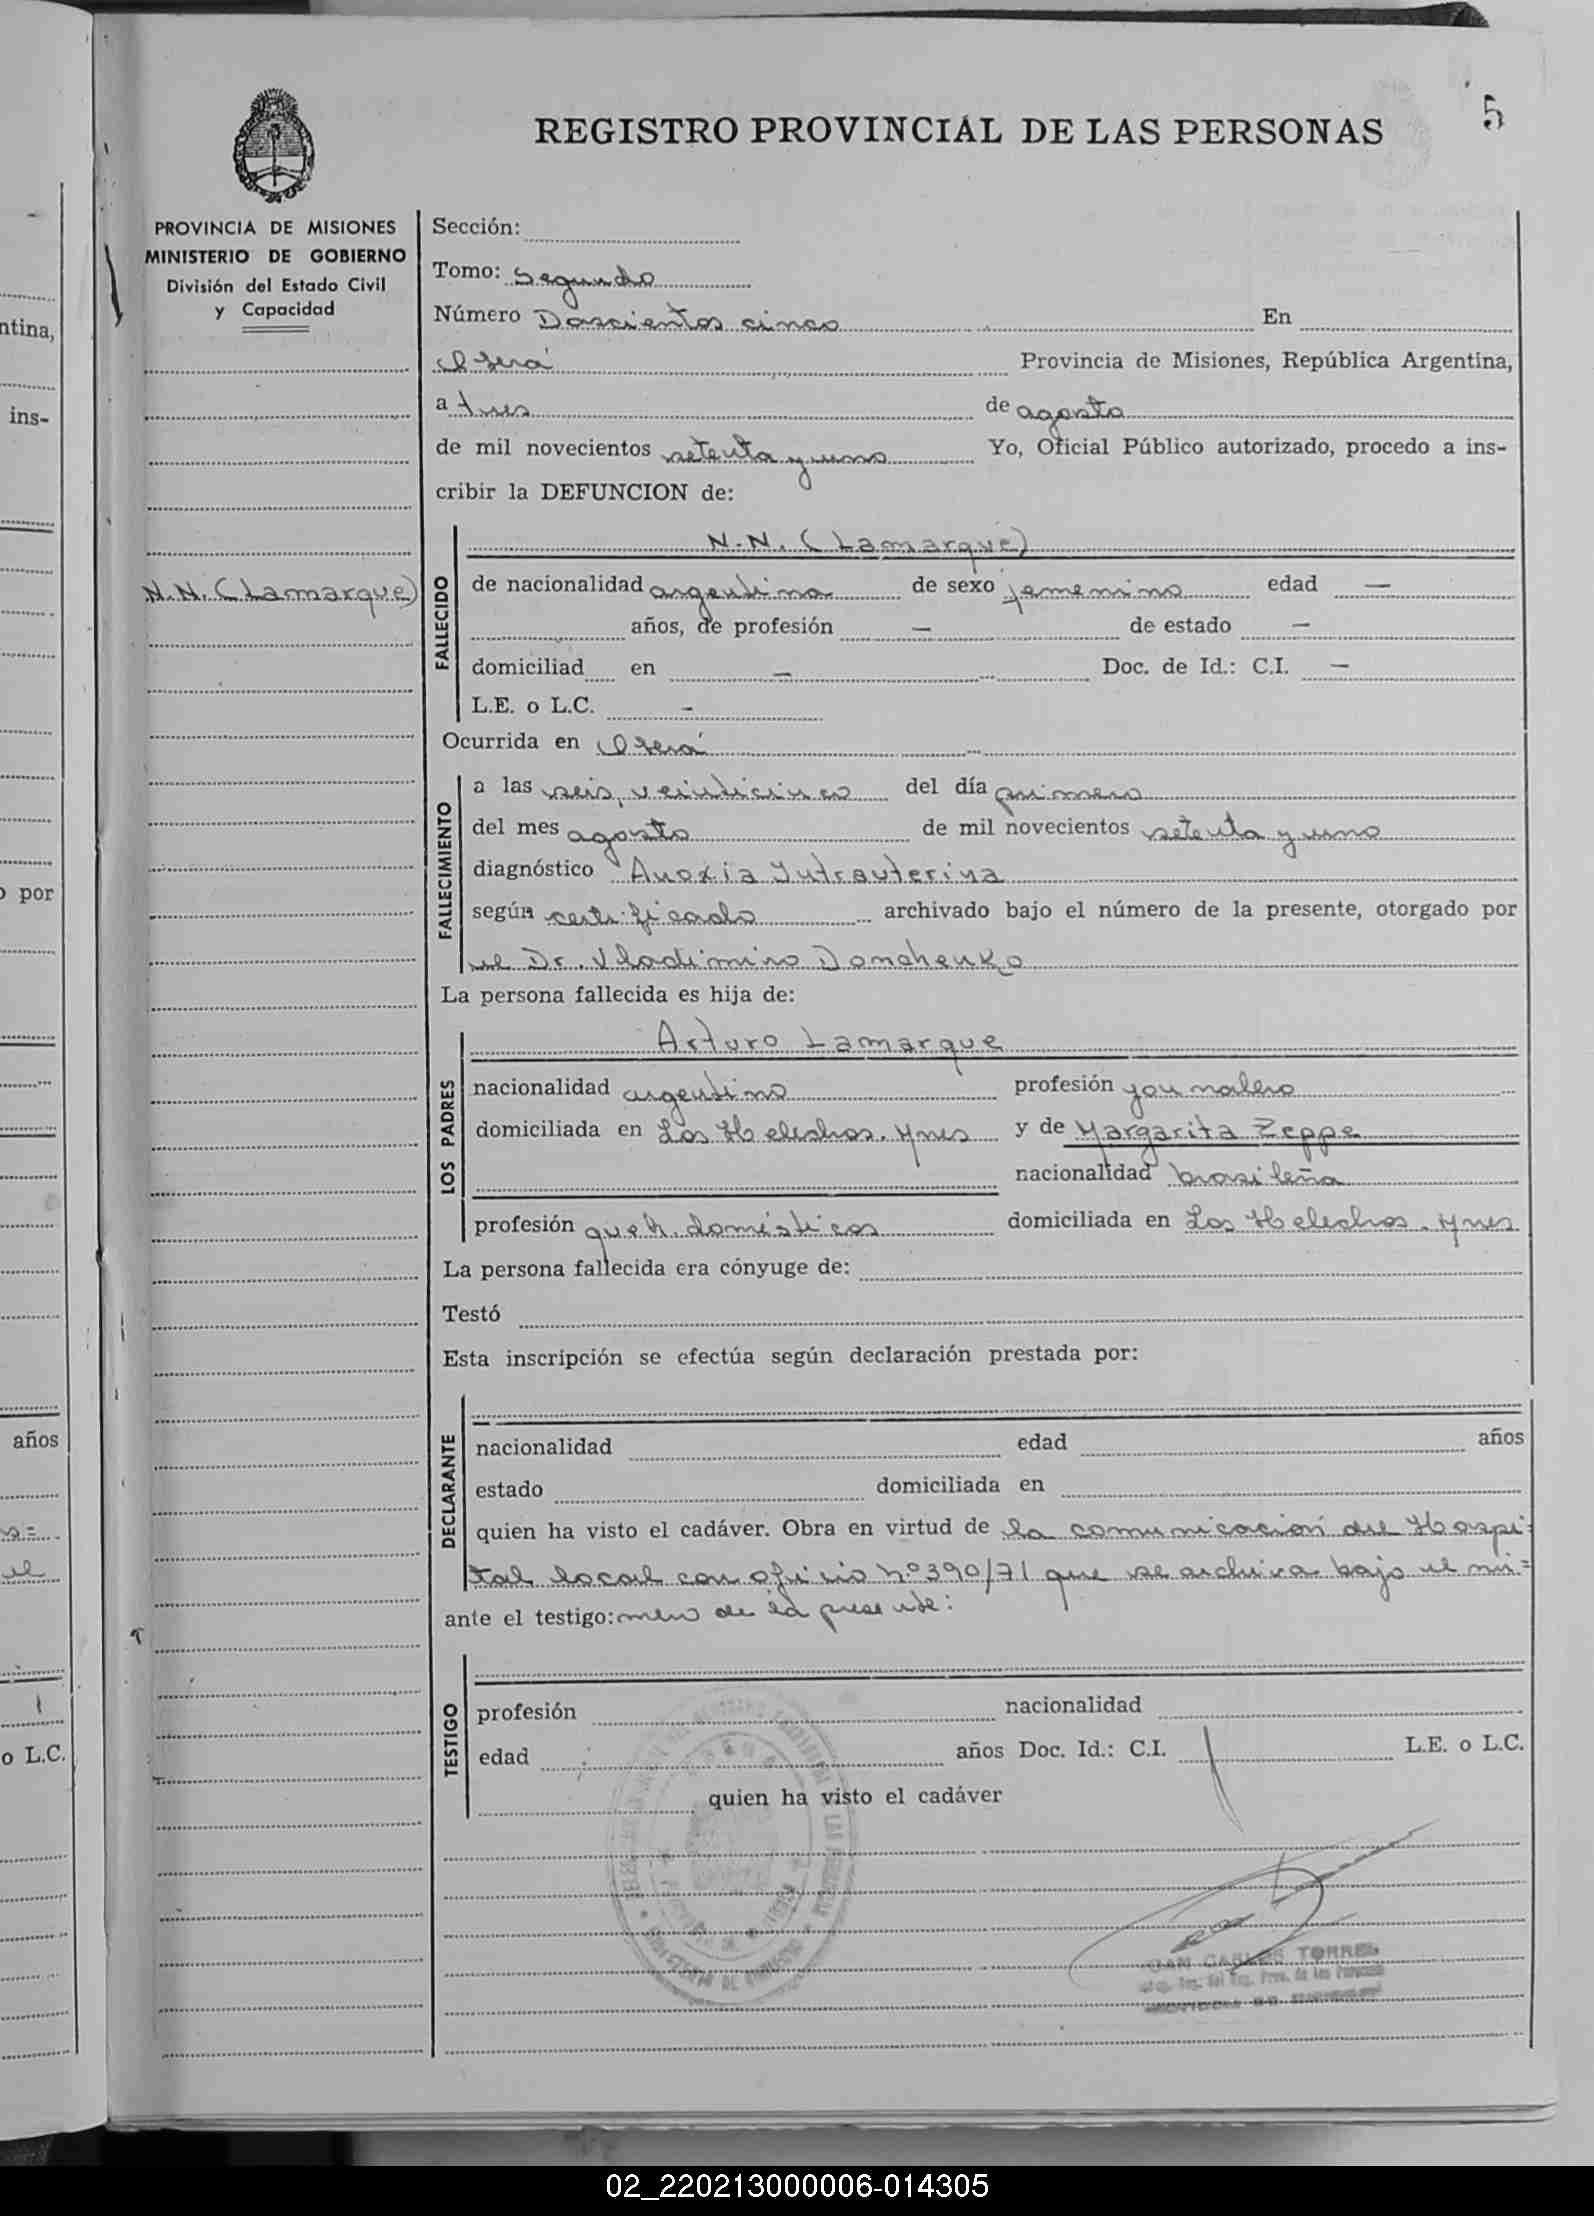 5
REGISTRO PROVINCIAL DE LAS PERSONAS
PROVINCIA DE MISIONES
MINISTERIO DE GOBIERNO
División del Estado Civil
y Capacidad
N.N. (Lamarque)
Sección:
Tomo: Segundo
Número Doscientos cinco En
Oberá Provincia de Misiones, República Argentina,
a tres de agosto
de mil novecientos setenta y uno Yo, Oficial Público autorizado, procedo a ins-
cribir la DEFUNCION de:
N.N. (Lamarque)
FALLECIDO
de nacionalidad argentina de sexo femenino edad —
años, de profesión — de estado —
domiciliad en — Doc. de Id.: C.I. —
L.E. o L.C. -
Ocurrida en Oberá
FALLECIMIENTO
a las seis, veinticinco del día primero
del mes agosto de mil novecientos setenta y uno
diagnóstico Anoxia Intrauterina
según certificado archivado bajo el número de la presente, otorgado por
el Dr. Vladimiro Donchenko
La persona fallecida es hija de:
Arturo Lamarque
LOS PADRES
nacionalidad argentino profesión jornalero
domiciliada en Los Helechos. Mnes y de Margarita Zeppe
nacionalidad brasileña
profesión queh. domésticos domiciliada en Los Helechos. Mnes
La persona fallecida era cónyuge de:
Testó
Esta inscripción se efectúa según declaración prestada por:
DECLARANTE
nacionalidad edad años
estado domiciliada en
quien ha visto el cadáver. Obra en virtud de la comunicación del Hospi=
tal local con oficio nº 390/71 que se archiva bajo el nú=
ante el testigo: mero de la presente:
TESTIGO
profesión nacionalidad
edad años Doc. Id.: C.I. L.E. o L.C.
quien ha visto el cadáver
JUAN CARLOS TORRES
ntina,
ins-
o por
años
el
o L.C.
02_220213000006-014305